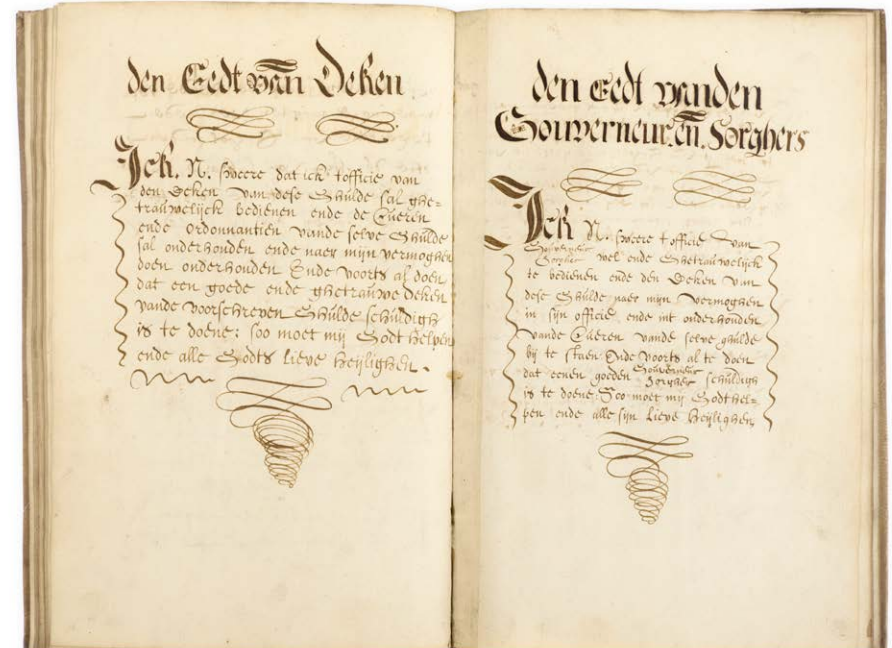 den Eedt van Deken
Ick. N. sweere dat ick tofficie van
den Deken van dese Ghulde sal ghe=
trauwelijck bedienen ende de Cueren
ende ordonnantien vande selve Ghulde
sal onderhouden ende naer mijn vermoghen
doen onderhouden Ende voorts al doen
dat een goede ende ghetrauwe Deken
vande voorschreven Ghulde schuldigh
is te doene: soo moet mij Godt helpen
ende alle Godts lieve heylighen.
den eedt vanden
Gouverneur. en. Sorghers
Ick N. sweere tofficie van
Gouverneur
Sorgher wel ende Ghetrauwelijck
te bedienen ende den Deken van
dese Ghulde naer mijn vermoghen
in sijn officie ende int onderhouden
vande Cueren vande selve ghulde
bij te staen Ende voorts al te doen
dat eenen goeden Gouverneur Sorgher schuldigh
is te doene: Soo moet mij Godt hel=
pen ende alle sijn lieve heylighen